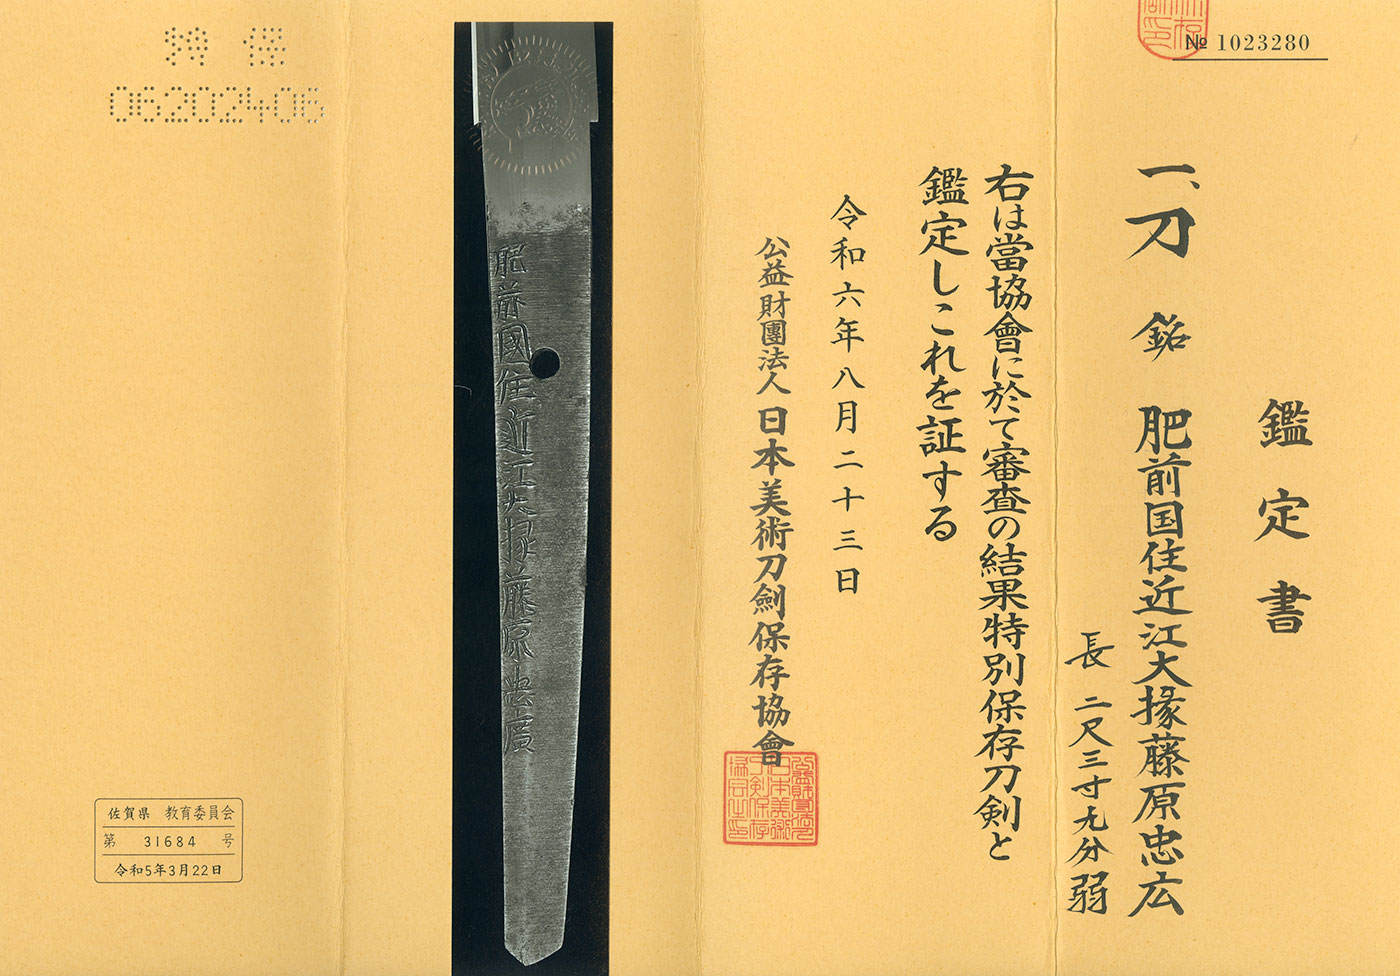 № 1023280
鑑定書
一、刀 銘 肥前国住近江大掾藤原忠広
長 二尺三寸九分弱
右は當協會に於て審査の結果特別保存刀剣と
鑑定しこれを証する
令和六年八月二十三日
公益財團法人 日本美術刀劍保存協會
肥前國住近江大掾藤原忠廣
特 保
06202406
佐賀県 教育委員会
第 31684 号
令和5年3月22日